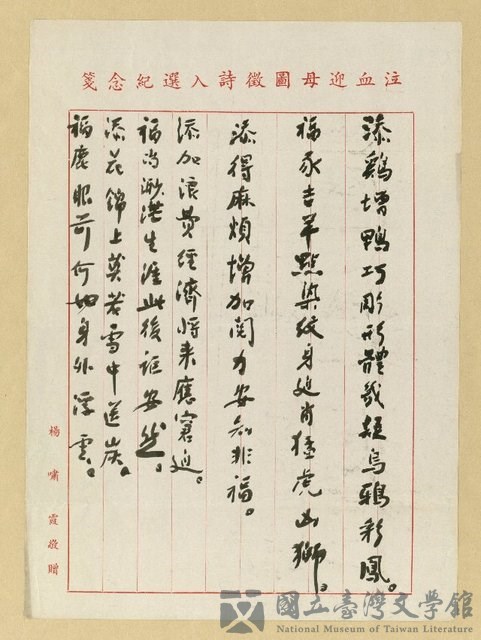 注血迎母圖徵詩入選紀念箋
添鷄增鴨巧彫形體幾疑烏鴉彩鳳。
福豕吉羊點染紋身迫肖猛虎山獅。
添得麻煩增加閱力安知非福。
添加浪費經濟將來應窘迫。
福尚渺茫生涯此後詎安然。
添花錦上莫若雪中送炭。
福塵眼前何如身外浮雲。
楊嘯霞敬贈
國立臺灣文學館
National Museum of Taiwan Literature